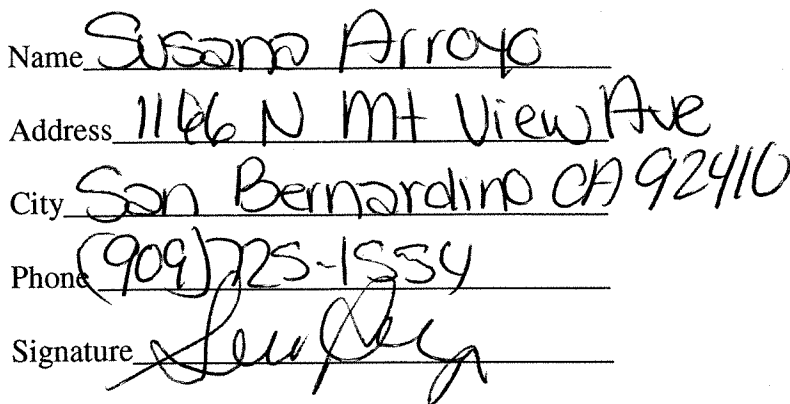 Name Susana Arroyo
Address 1166 N Mt View Ave
City San Bernardino CA 92410
Phone (909) 725-1554
Signature